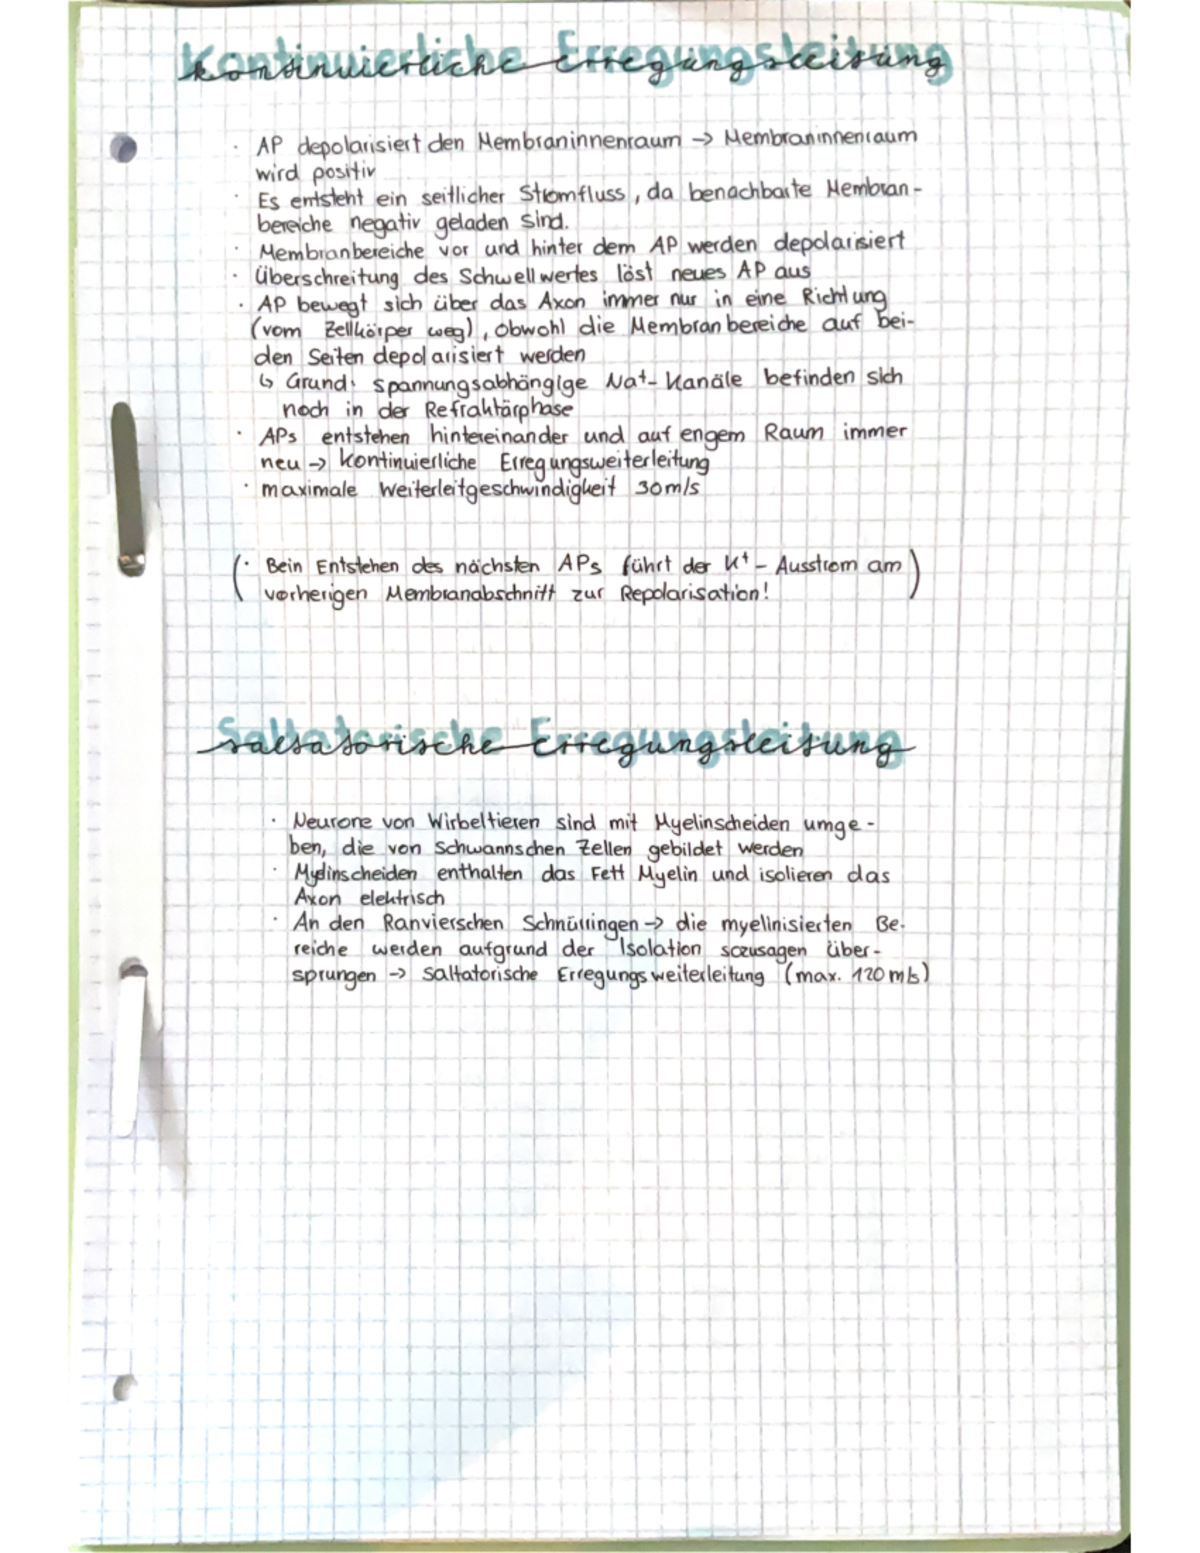 Kontinuierliche Erregungsleitung
· AP depolarisiert den Membraninnenraum → Membraninnenraum
wird positiv
· Es entsteht ein seitlicher Stromfluss, da benachbarte Membran-
bereiche negativ geladen sind.
· Membranbereiche vor und hinter dem AP werden depolarisiert
· Überschreitung des Schwellwertes löst neues AP aus
· AP bewegt sich über das Axon immer nur in eine Richtung
(vom Zellkörper weg), obwohl die Membranbereiche auf bei-
den Seiten depolarisiert werden
↳ Grund: spannungsabhängige Na⁺-Kanäle befinden sich
noch in der Refraktärphase
· APs entstehen hintereinander und auf engem Raum immer
neu → kontinuierliche Erregungsweiterleitung
· maximale Weiterleitgeschwindigkeit 30m/s
(· Bein Entstehen des nächsten APs führt der K⁺-Ausstrom am
vorherigen Membranabschnitt zur Repolarisation!)
Saltatorische Erregungsleitung
· Neurone von Wirbeltieren sind mit Myelinscheiden umge-
ben, die von Schwannschen Zellen gebildet werden
· Myelinscheiden enthalten das Fett Myelin und isolieren das
Axon elektrisch
· An den Ranvierschen Schnürringen → die myelinisierten Be-
reiche werden aufgrund der Isolation sozusagen über-
sprungen → saltatorische Erregungsweiterleitung (max. 120 m/s)